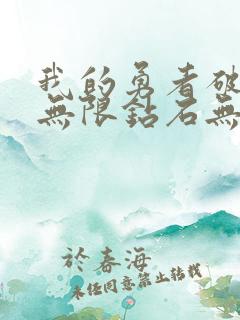 我的勇者破
無限鈷石無
於春海
未經同意禁止轉載